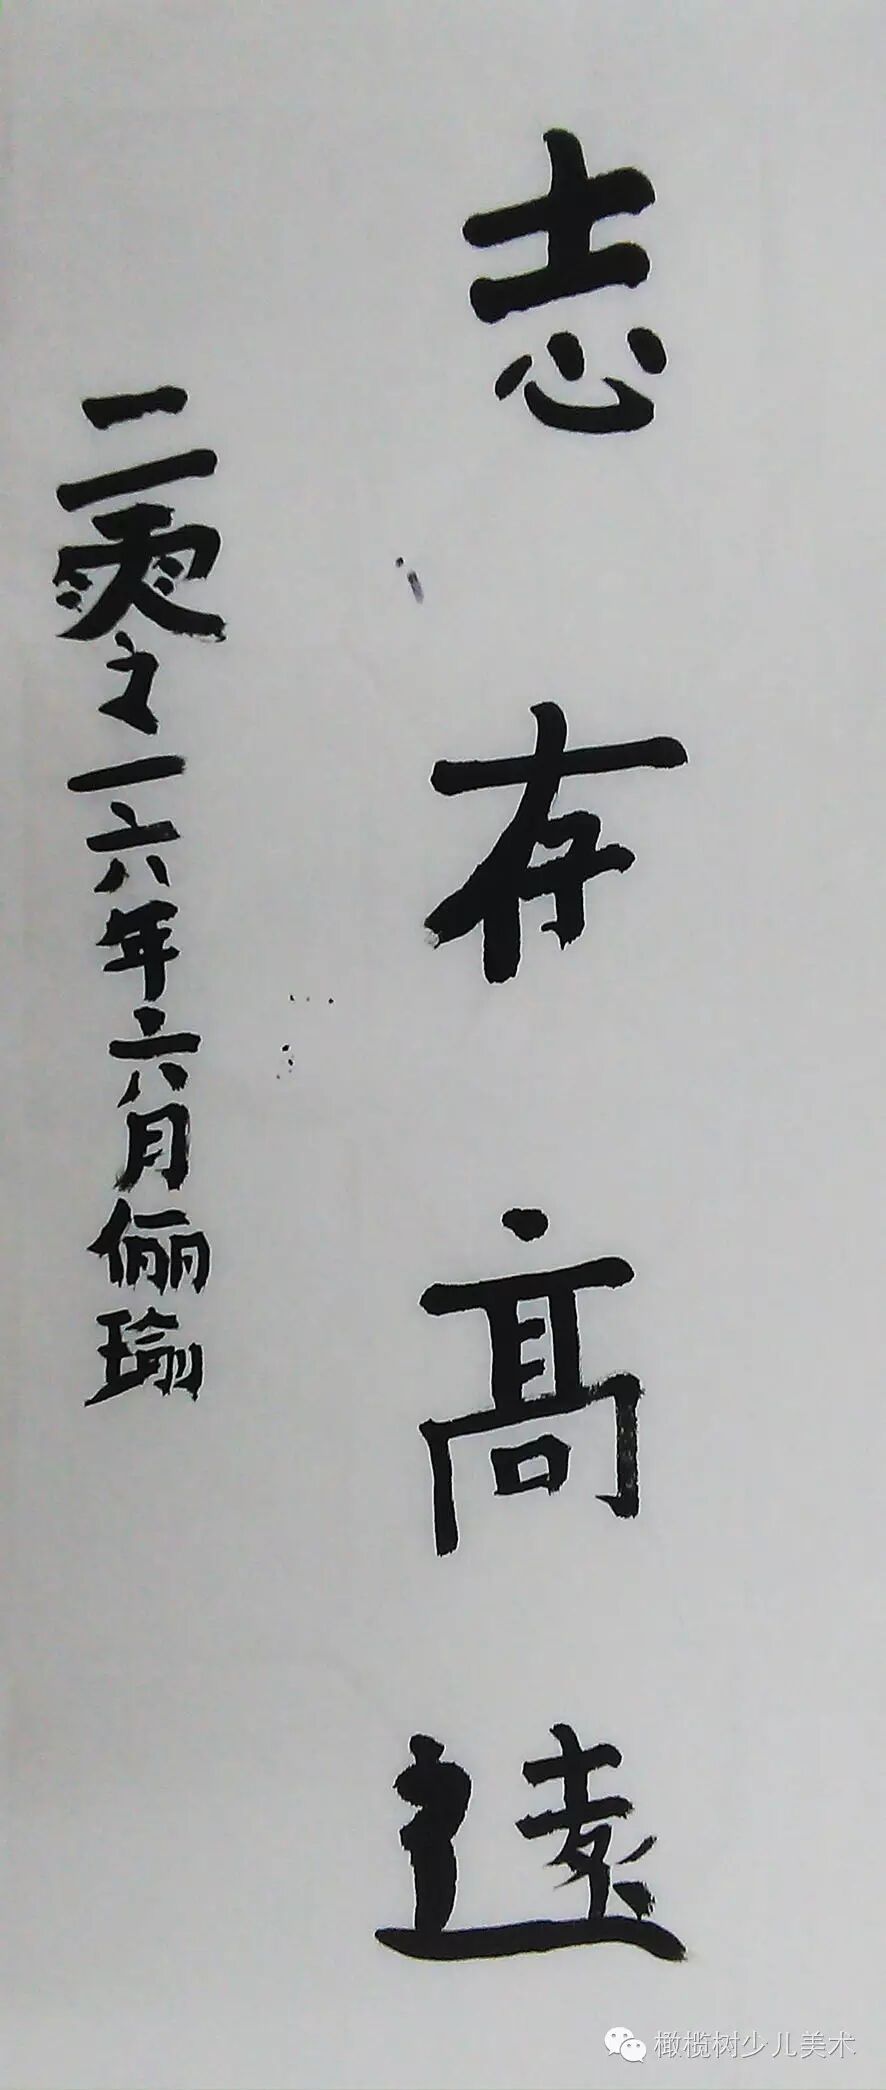 志存高遠
二零一六年六月俪瑜
橄榄树少儿美术